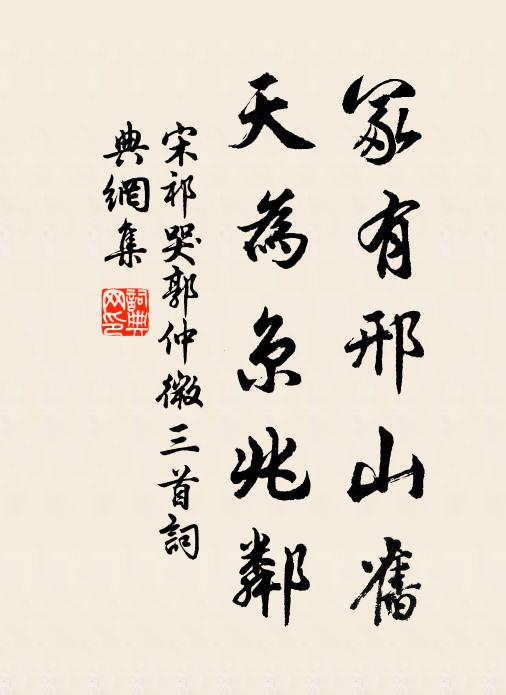 冢有邢山舊
天為京兆鄰
宋祁哭郭仲微三首詞
典網集
詞典網印